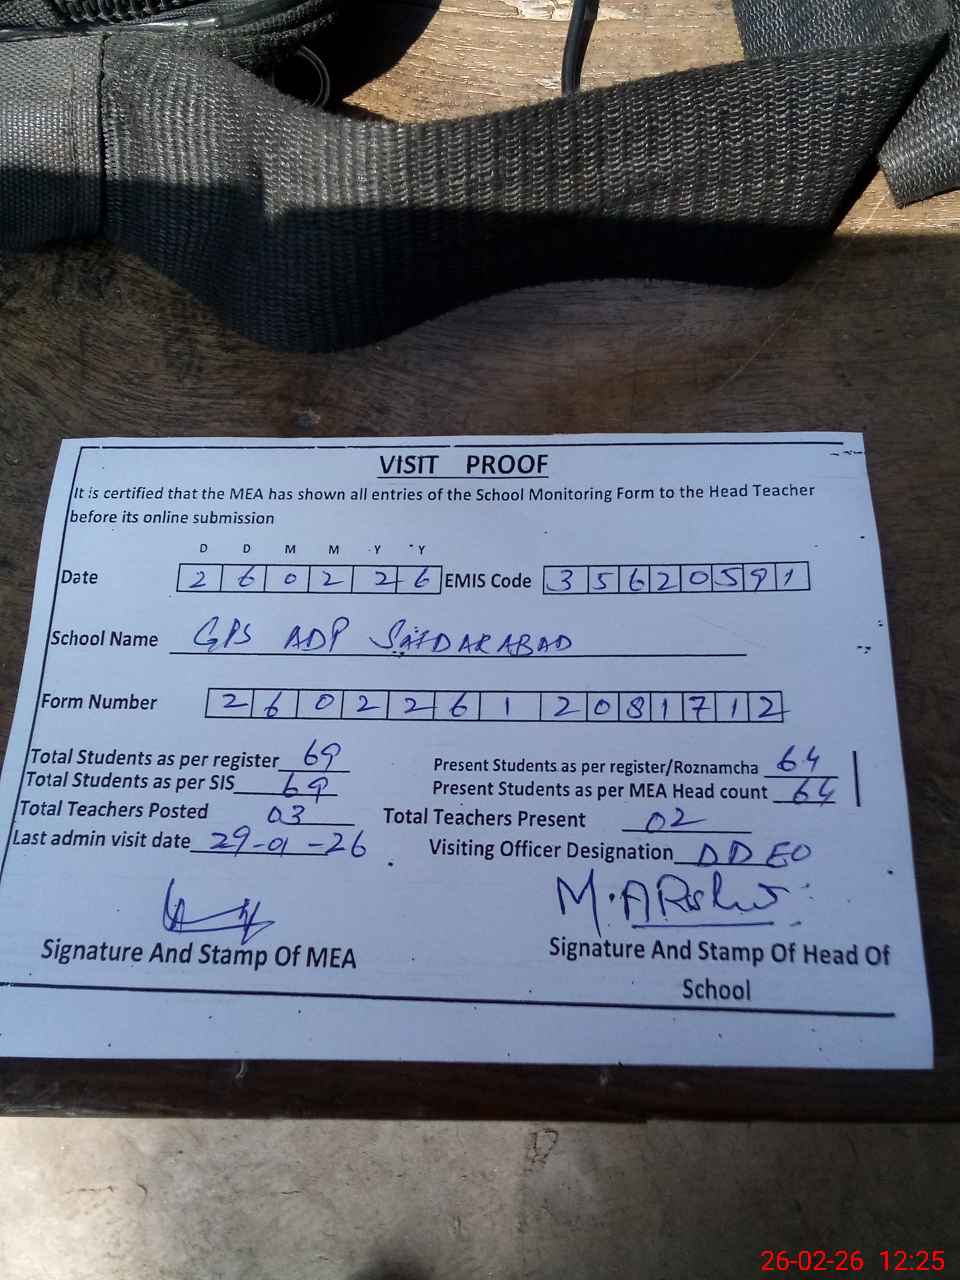 VISIT PROOF
It is certified that the MEA has shown all entries of the School Monitoring Form to the Head Teacher
before its online submission
D D M M Y Y
Date 2 6 0 2 2 6 EMIS Code 3 5 6 2 0 5 9 1
School Name GPS ADP SAIDARABAD
Form Number 2 6 0 2 2 6 1 2 0 8 1 7 1 2
Total Students as per register 69 Present Students as per register/Roznamcha 64
Total Students as per SIS 69 Present Students as per MEA Head count 64
Total Teachers Posted 03 Total Teachers Present 02
Last admin visit date 29-01-26 Visiting Officer Designation DDEO
M.ARshd
Signature And Stamp Of MEA Signature And Stamp Of Head Of
School
26-02-26 12:25